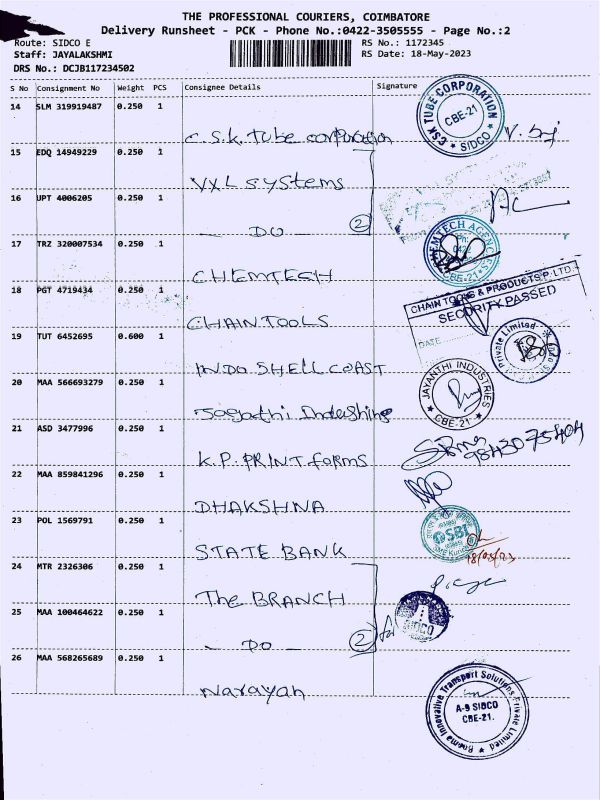 THE PROFESSIONAL COURIERS, COIMBATORE
Delivery Runsheet - PCK - Phone No.:0422-3505555 - Page No.:2
Route: SIDCO E
RS No.: 1172345
Staff: JAYALAKSHMI
RS Date: 18-May-2023
DRS No.: DCJB117234502
S No Consignment No Weight PCS Consignee Details Signature
14 SLM 319919487 0.250 1
C.S.K. Tube corporation
CSK TUBE CORPORATION
CBE-21
SIDCO
15 EDQ 14949229 0.250 1
VXL systems
16 UPT 4006205 0.250 1
DO 2
17 TRZ 320007534 0.250 1
CHEMTECH
CBE-21
18 PGT 4719434 0.250 1
CHAIN TOOLS
CHAIN TOOLS & PRODUCTS P.LTD.
SECURITY PASSED
DATE
19 TUT 6452695 0.600 1
INDO SHELL COAST
Private Limited
20 MAA 566693279 0.250 1
JAYANTHI INDUSTRIES
CBE-21
21 ASD 3477996 0.250 1
K.P. PRINT forms
98430 75404
22 MAA 859841296 0.250 1
DHAKSHNA
23 POL 1569791 0.250 1
STATE BANK
SBI
18/05/23
24 MTR 2326306 0.250 1
The BRANCH
25 MAA 100464622 0.250 1
DO 2 for
SIDCO
26 MAA 568265689 0.250 1
Narayan
Innovative Transport Solutions Private Limited
A-9 SIDCO
CBE-21.